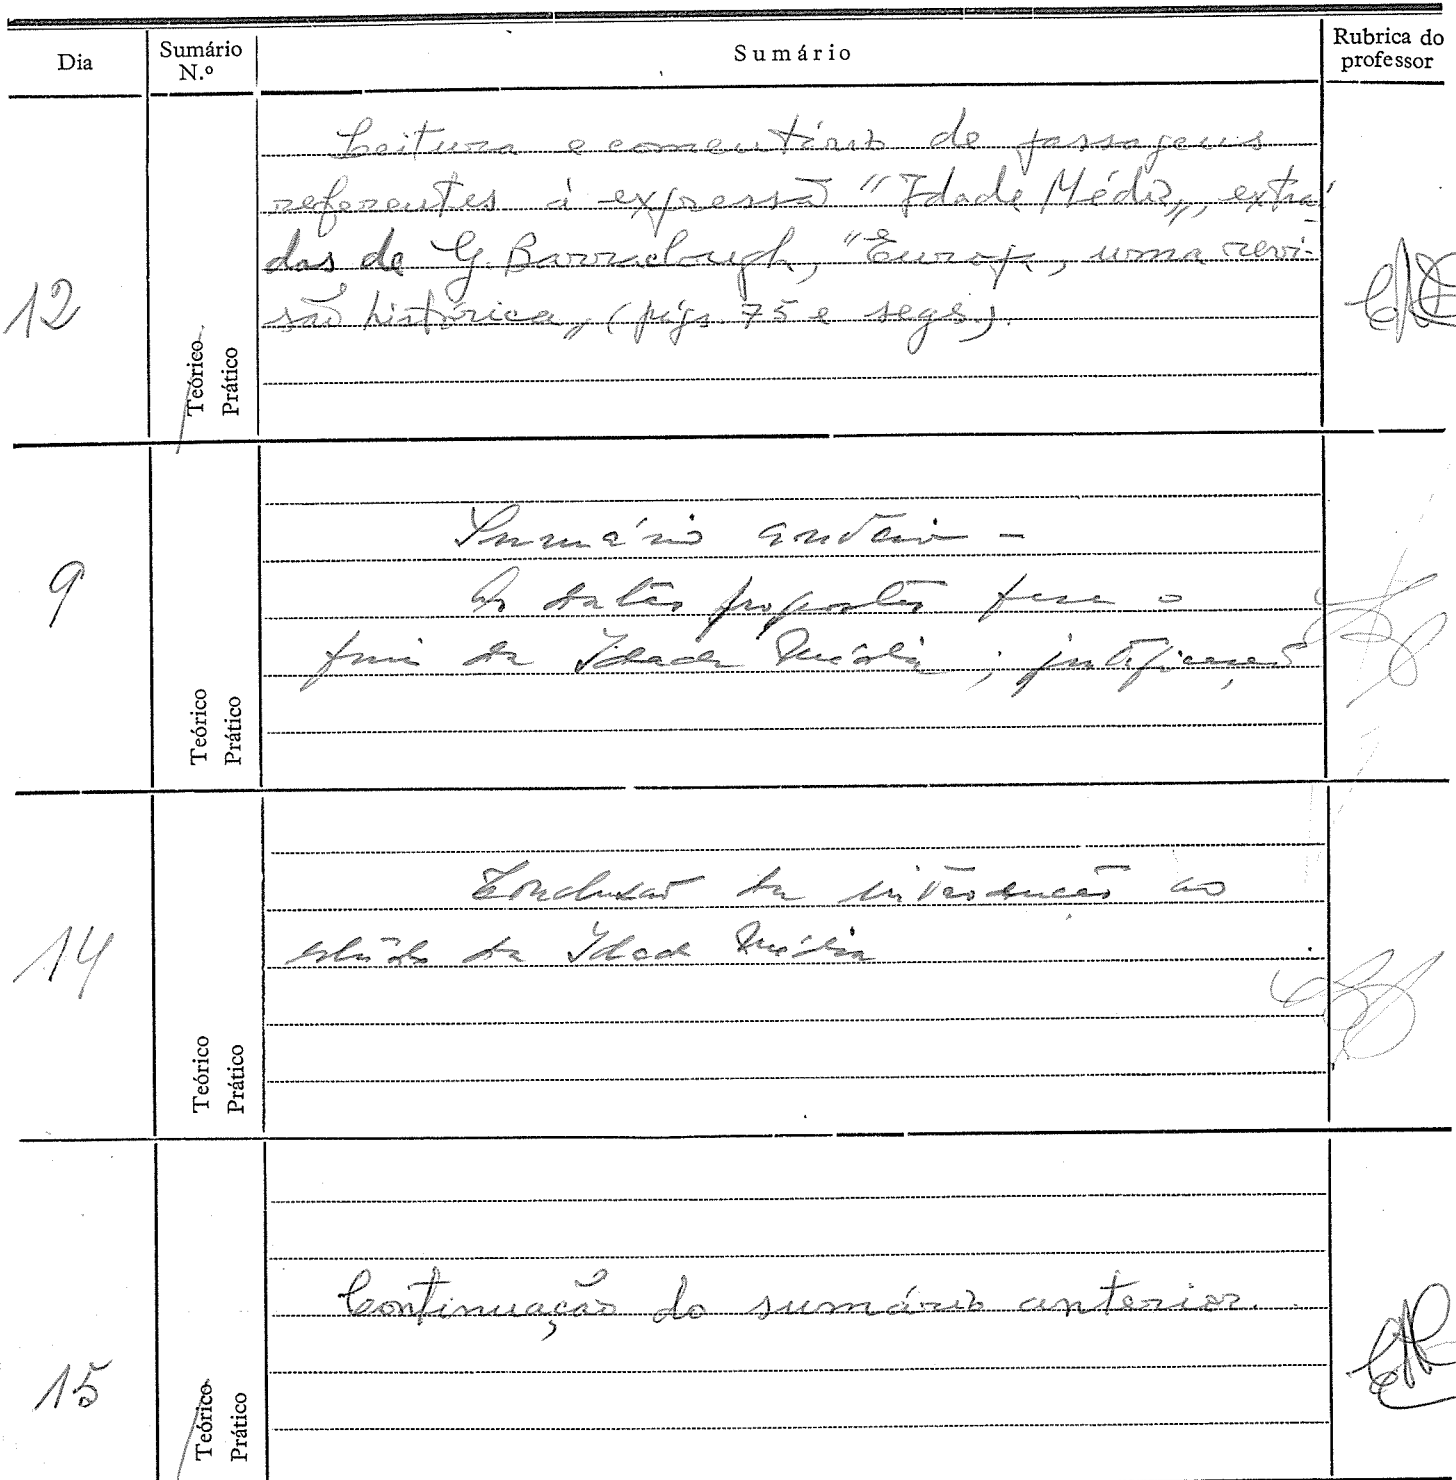 Dia
Sumário N.º
Sumário
Rubrica do professor
12
Teórico
Prático
Leitura e comentário de passagens
referentes à expressão "Idade Média", extraí
das de G. Barraclough, "Europa, uma revi-
são histórica" (págs. 75 e segs.).
9
Teórico
Prático
Sumário anterior -
As datas propostas para o
fim da Idade Média; justificação
14
Teórico
Prático
Conclusão da introdução ao
estudo da Idade Média
15
Teórico
Prático
Continuação do sumário anterior.